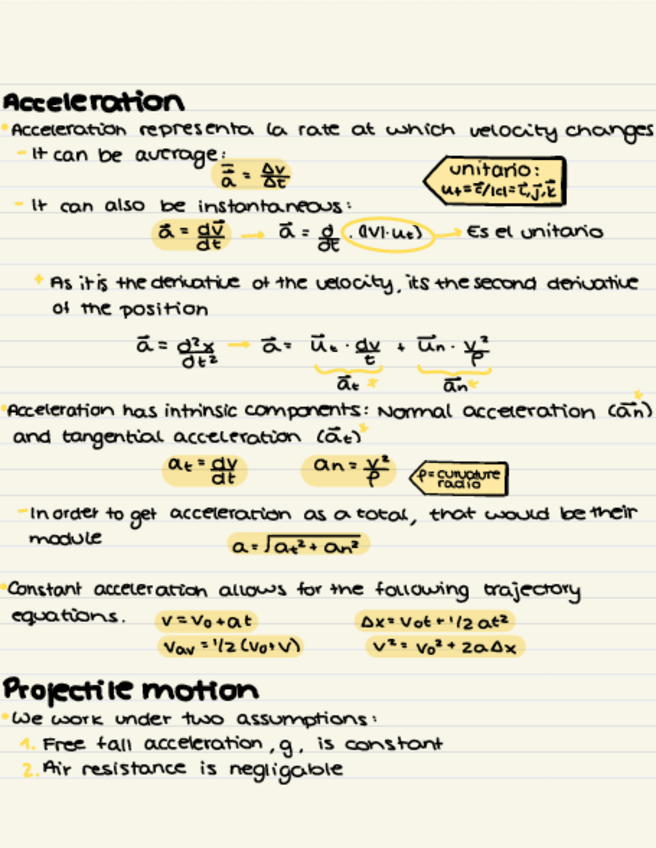 Acceleration
Acceleration representa la rate at which velocity changes
- It can be average:
a⃗ = Δv/Δt
unitario:
- It can also be instantaneous:
a⃗ = dv⃗/dt → a⃗ = d/dt · (|v|·ut) → Es el unitario
+ As it is the derivative of the velocity, its the second derivative
of the position
a⃗ = d²x/dt² → a⃗ = u⃗t · dv/t + u⃗n · v²/ρ
a⃗t * a⃗n *
Acceleration has intrinsic components: Normal acceleration (a⃗n)*
and tangential acceleration (a⃗t)*
at = dv/dt an = v²/ρ
ρ = curvature
radio
- In order to get acceleration as a total, that would be their
module
a = √at² + an²
Constant acceleration allows for the following trajectory
equations. v = v₀ + at Δx = v₀t + 1/2 at²
Vav = 1/2 (v₀+v) v² = v₀² + 2aΔx
Projectile motion
We work under two assumptions:
1. Free fall acceleration, g, is constant
2. Air resistance is negligable